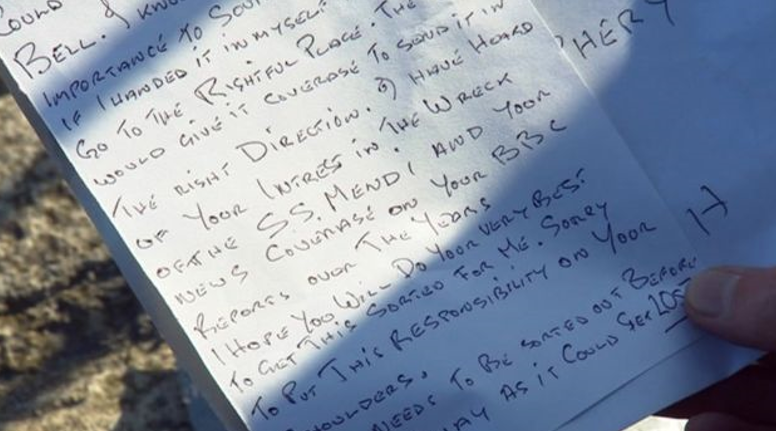 COULD
BELL. I KNOW
IMPORTANCE TO SOUT
IF I HANDED IT IN MYSELF
GO TO THE RIGHTFUL PLACE. THE
WOULD GIVE IT COVERAGE TO SEND IT IN
THE RIGHT DIRECTION. I HAVE HEARD
OF YOUR INTREST IN THE WRECK
OF THE S.S. MENDI AND YOUR
NEWS COVERAGE ON YOUR BBC
REPORTS OVER THE YEARS
I HOPE YOU WILL DO YOUR VERY BEST
TO GET THIS SORTED FOR ME. SORRY
TO PUT THIS RESPONSIBILITY ON YOUR
SHOULDERS.
NEEDS TO BE SORTED OUT BEFORE
AS IT COULD GET LOST
HERY